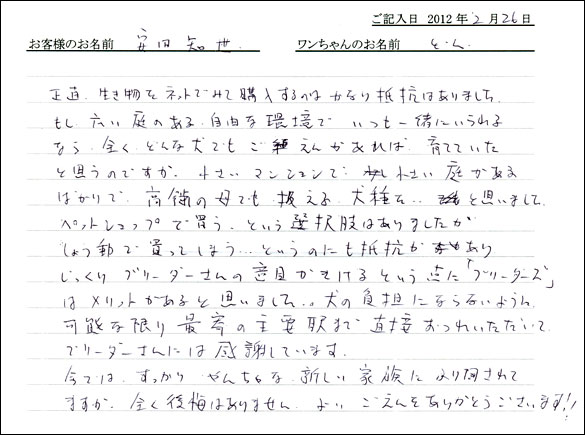 ご記入日 2012年2月26日
お客様のお名前 安田知世 ワンちゃんのお名前 とん
正直、生き物をネットでみて購入するのはかなり抵抗はありました
もし広い庭のある自由な環境でいつも一緒にいられる
なら、全くどんな犬でもごえんがあれば、育てていた
と思うのですが、小さいマンションで小さい庭がある
ばかりで、高齢の母でも扱える犬種を‥と思いまして、
ペットショップで買う、という選択肢はありましたが
しょう動で買ってしまう…というのにも抵抗があり
じっくりブリーダーさんの意見がきけるという点に「ブリーダーズ」
はメリットがあると思いました。犬の負担にならないように
可能な限り最寄の主要駅まで直接おつれいただいて
ブリーダーさんには感謝しています。
今では、すっかりやんちゃな新しい家族にふり回されて
ますが、全く後悔はありません、よいごえんをありがとうございます!!